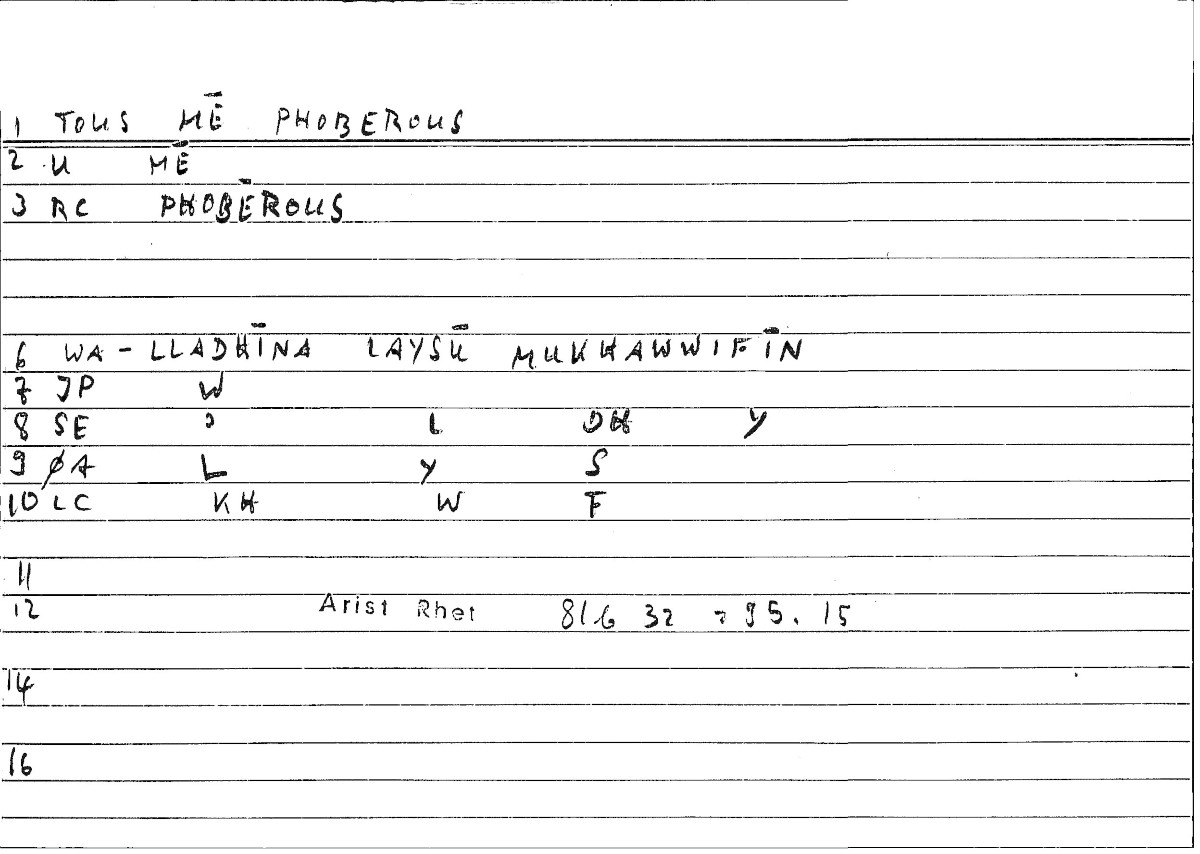 1 TOUS MĒ PHOBEROUS
2 U MĒ
3 RC PHOBĒROUS
6 WA-LLADHĪNA LAYSŪ MUKHAWWIFĪN
7 JP W
8 SE ʾ L DH Y
9 ØA L Y S
10 LC KH W F
11
12 Arist Rhet 81b 32 = 95.15
14
16